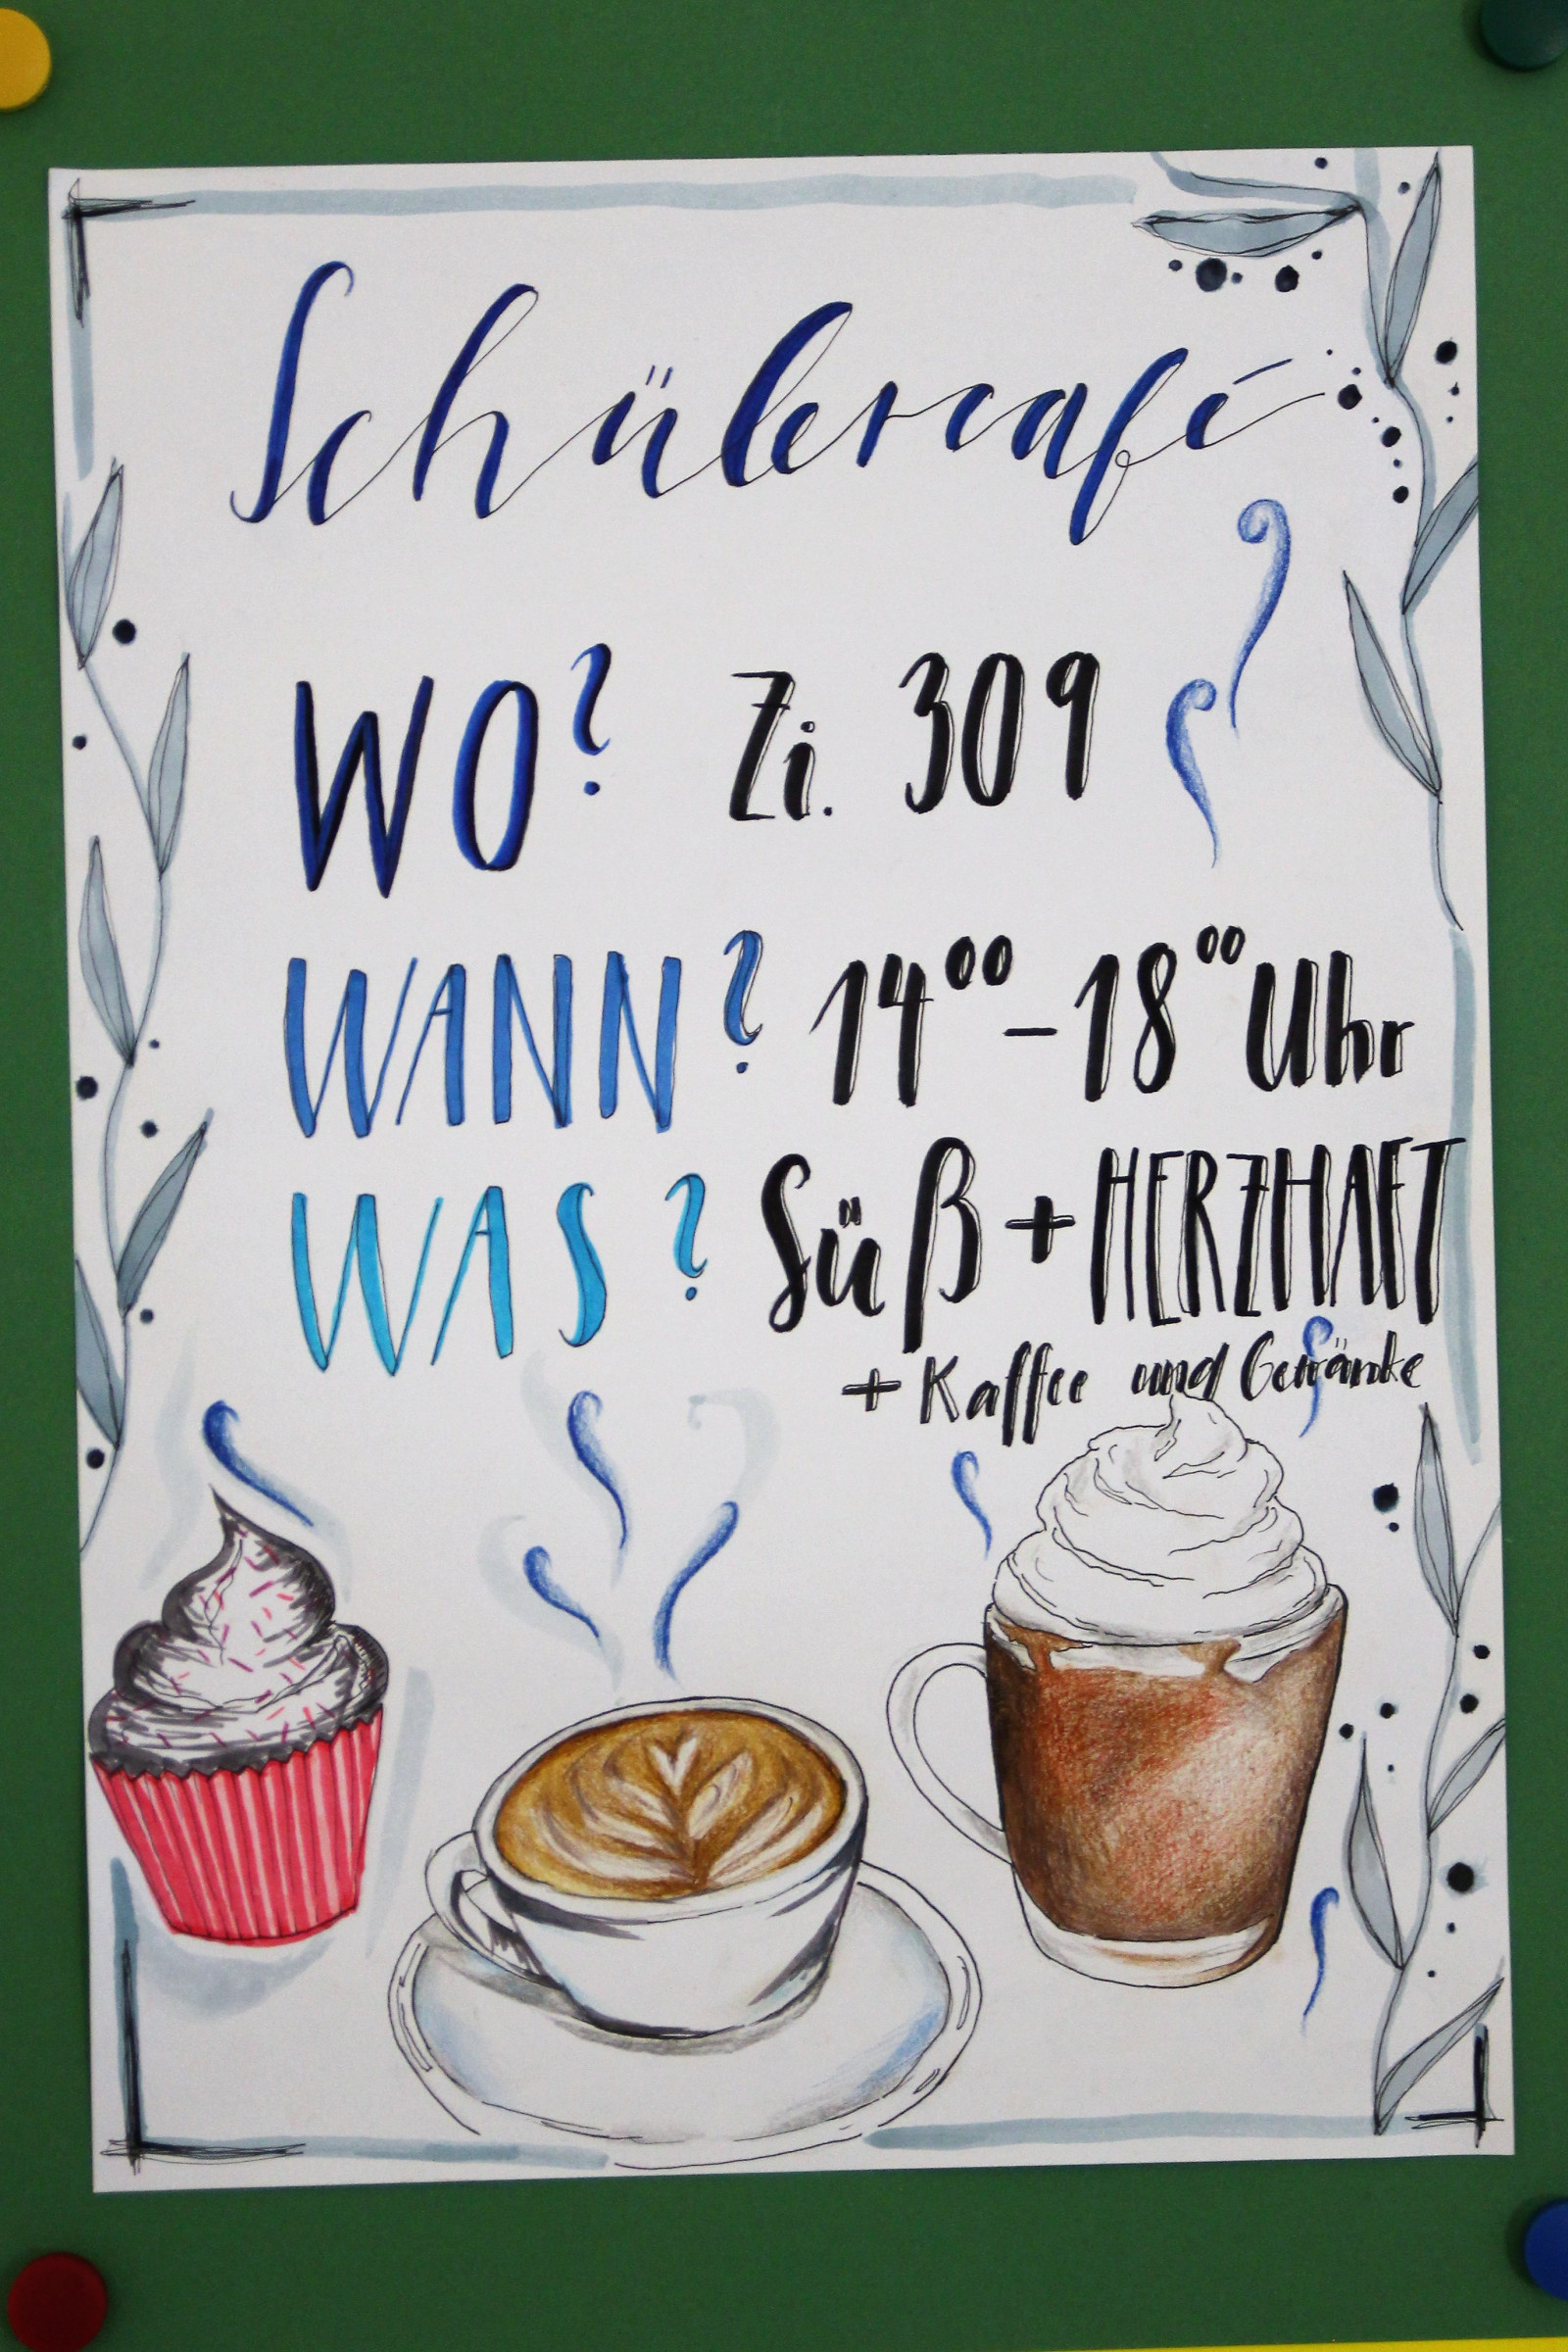 Schülercafé
WO? Zi. 309
WANN? 14⁰⁰-18⁰⁰ Uhr
WAS? Süß + HERZHAFT
+ Kaffee und Getränke